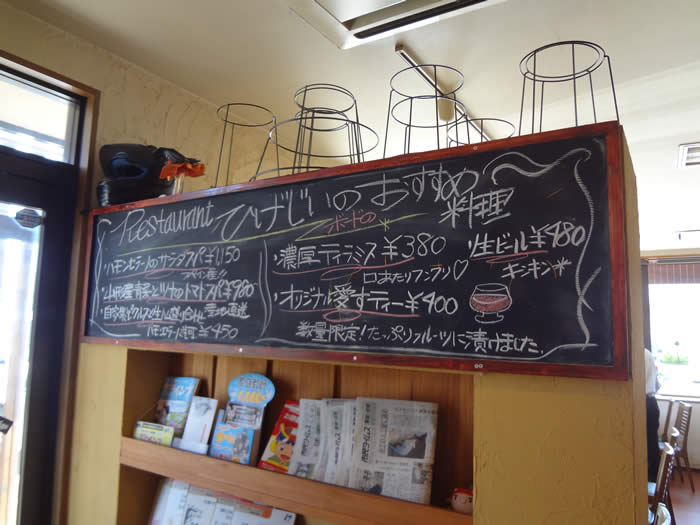 Restaurant ひげじいの おすすめ料理
ボードの
ハモンセラーノのサラダスパ¥1150
スペイン産!!
山形産青菜とツナのトマトスパ¥980
産地直送
¥450
濃厚ティラミス¥380
口あたりフンワリ♡
オリジナル愛すティー¥400
数量限定!たっぷりフルーツに漬けました.
生ビール¥480
キンキン*
市民タイムス